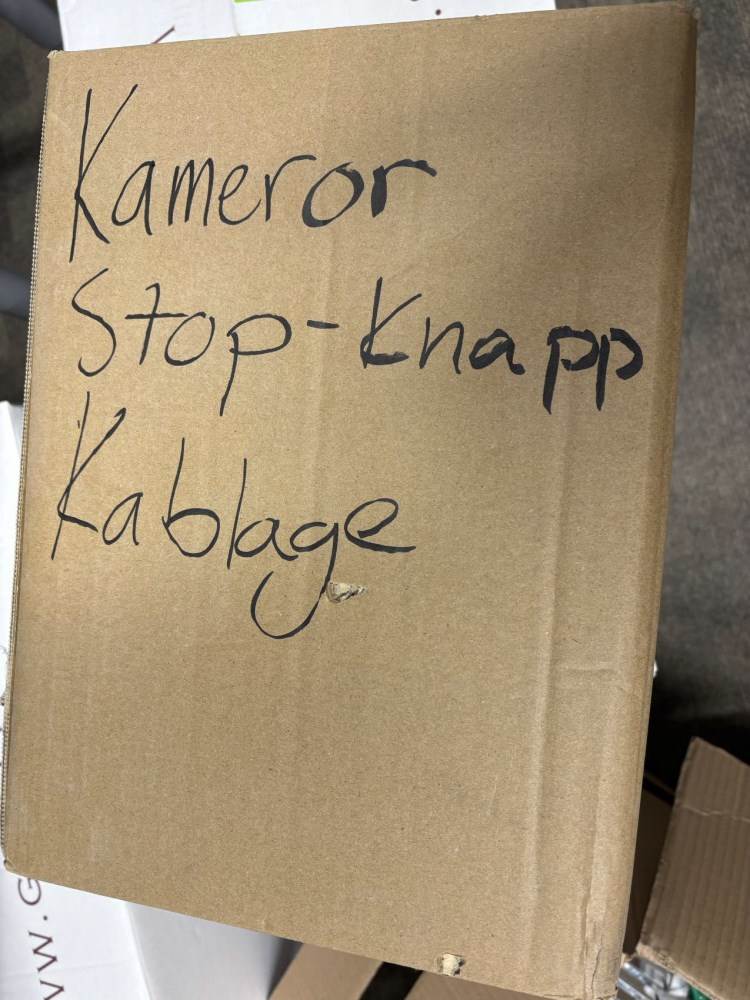 Kameror
Stop-knapp
Kablage
WW.G